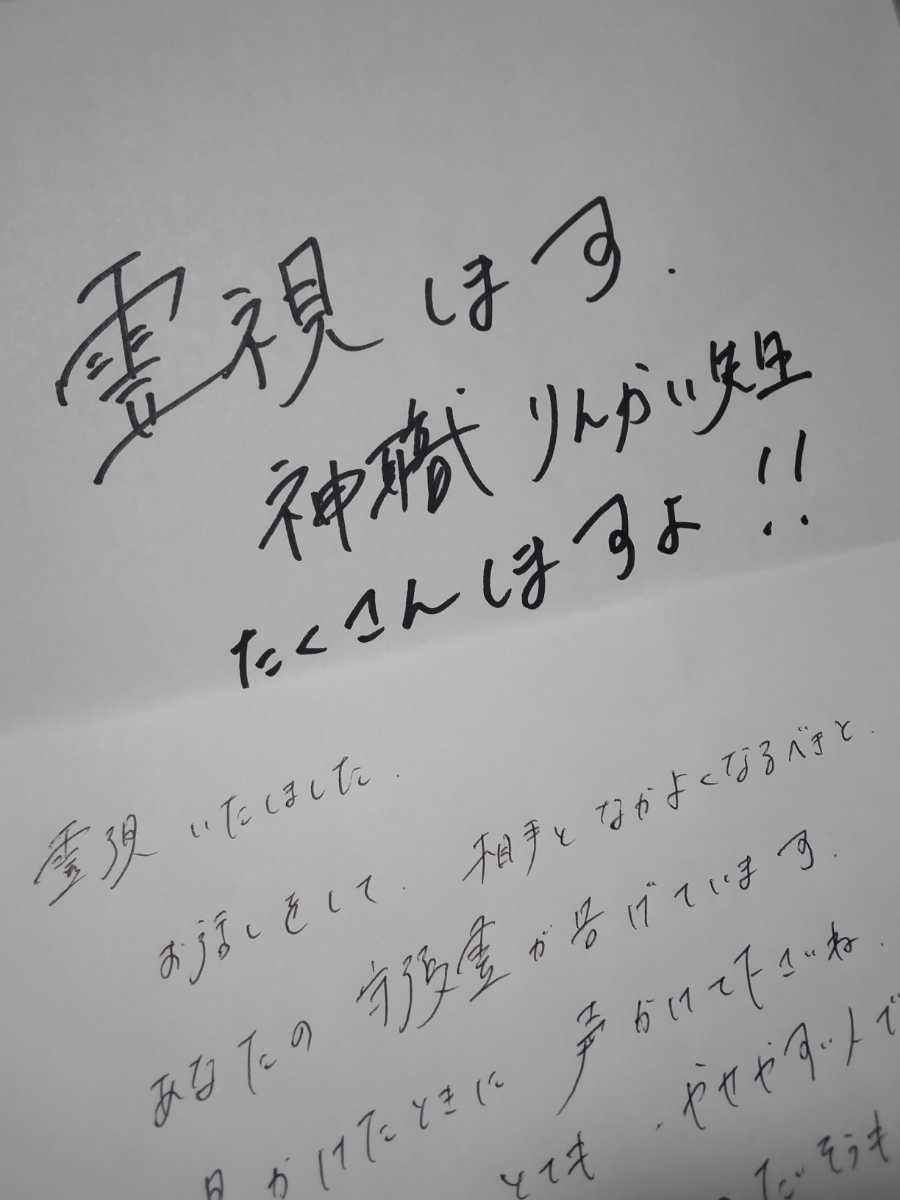 霊視します.
神職 りんかい先生
たくさんしますよ!!
霊視 いたしました.
お話しをして. 相手と なかよくなるべきと.
あなたの 守護霊が告げています.
見かけたときに 声かけて下さいね.
とても.やせやすい人で
だそうも